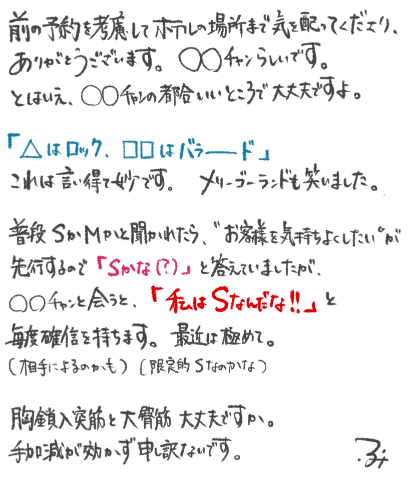 前の予約を考慮してホテルの場所まで気を配ってくださり、
ありがとうございます。 ○○チャンらしいです。
とはいえ、○○チャンの都合いいところで大丈夫ですよ。
「△はロック、□□はバラード」
これは言い得て妙です。 メリーゴーランドも笑いました。
普段SかMかと聞かれたら、"お客様を気持ちよくしたい"が
先行するので「Sかな(?)」と答えていましたが、
○○チャンと会うと、「私はSなんだな!!」と
毎度確信を持ちます。 最近は極めて。
(相手によるのかも) (限定的Sなのかな)
胸鎖乳突筋と大臀筋 大丈夫ですか。
手加減が効かず申し訳ないです。